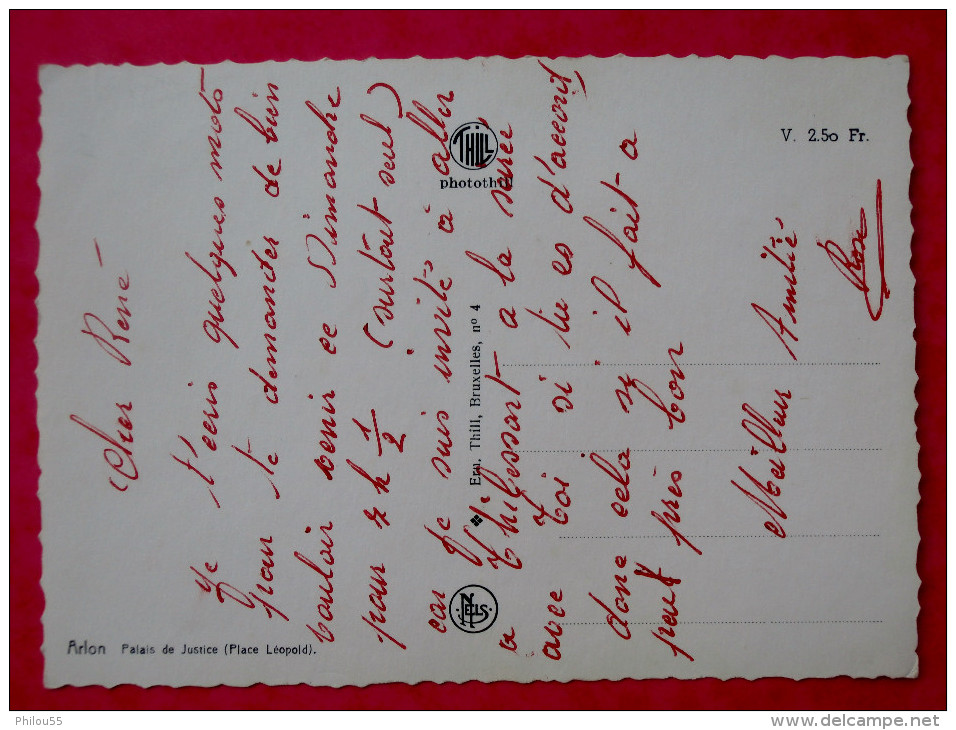 Cher René
Je t'écris quelques mots
pour te demander de bien
vouloir venir ce Dimanche
pour 7 h 1/2 (surtout seul)
car je suis invité à aller
a Thibessart a la soirée
avec toi si tu es d'accord
donc cela si il fait a
peut près bon
Meilleur Amitié
Rose
Arlon Palais de Justice (Place Léopold).
THILL
photothill
Ern. Thill, Bruxelles, nº 4
NELS
V. 2.50 Fr.
Philou55
www.delcampe.net